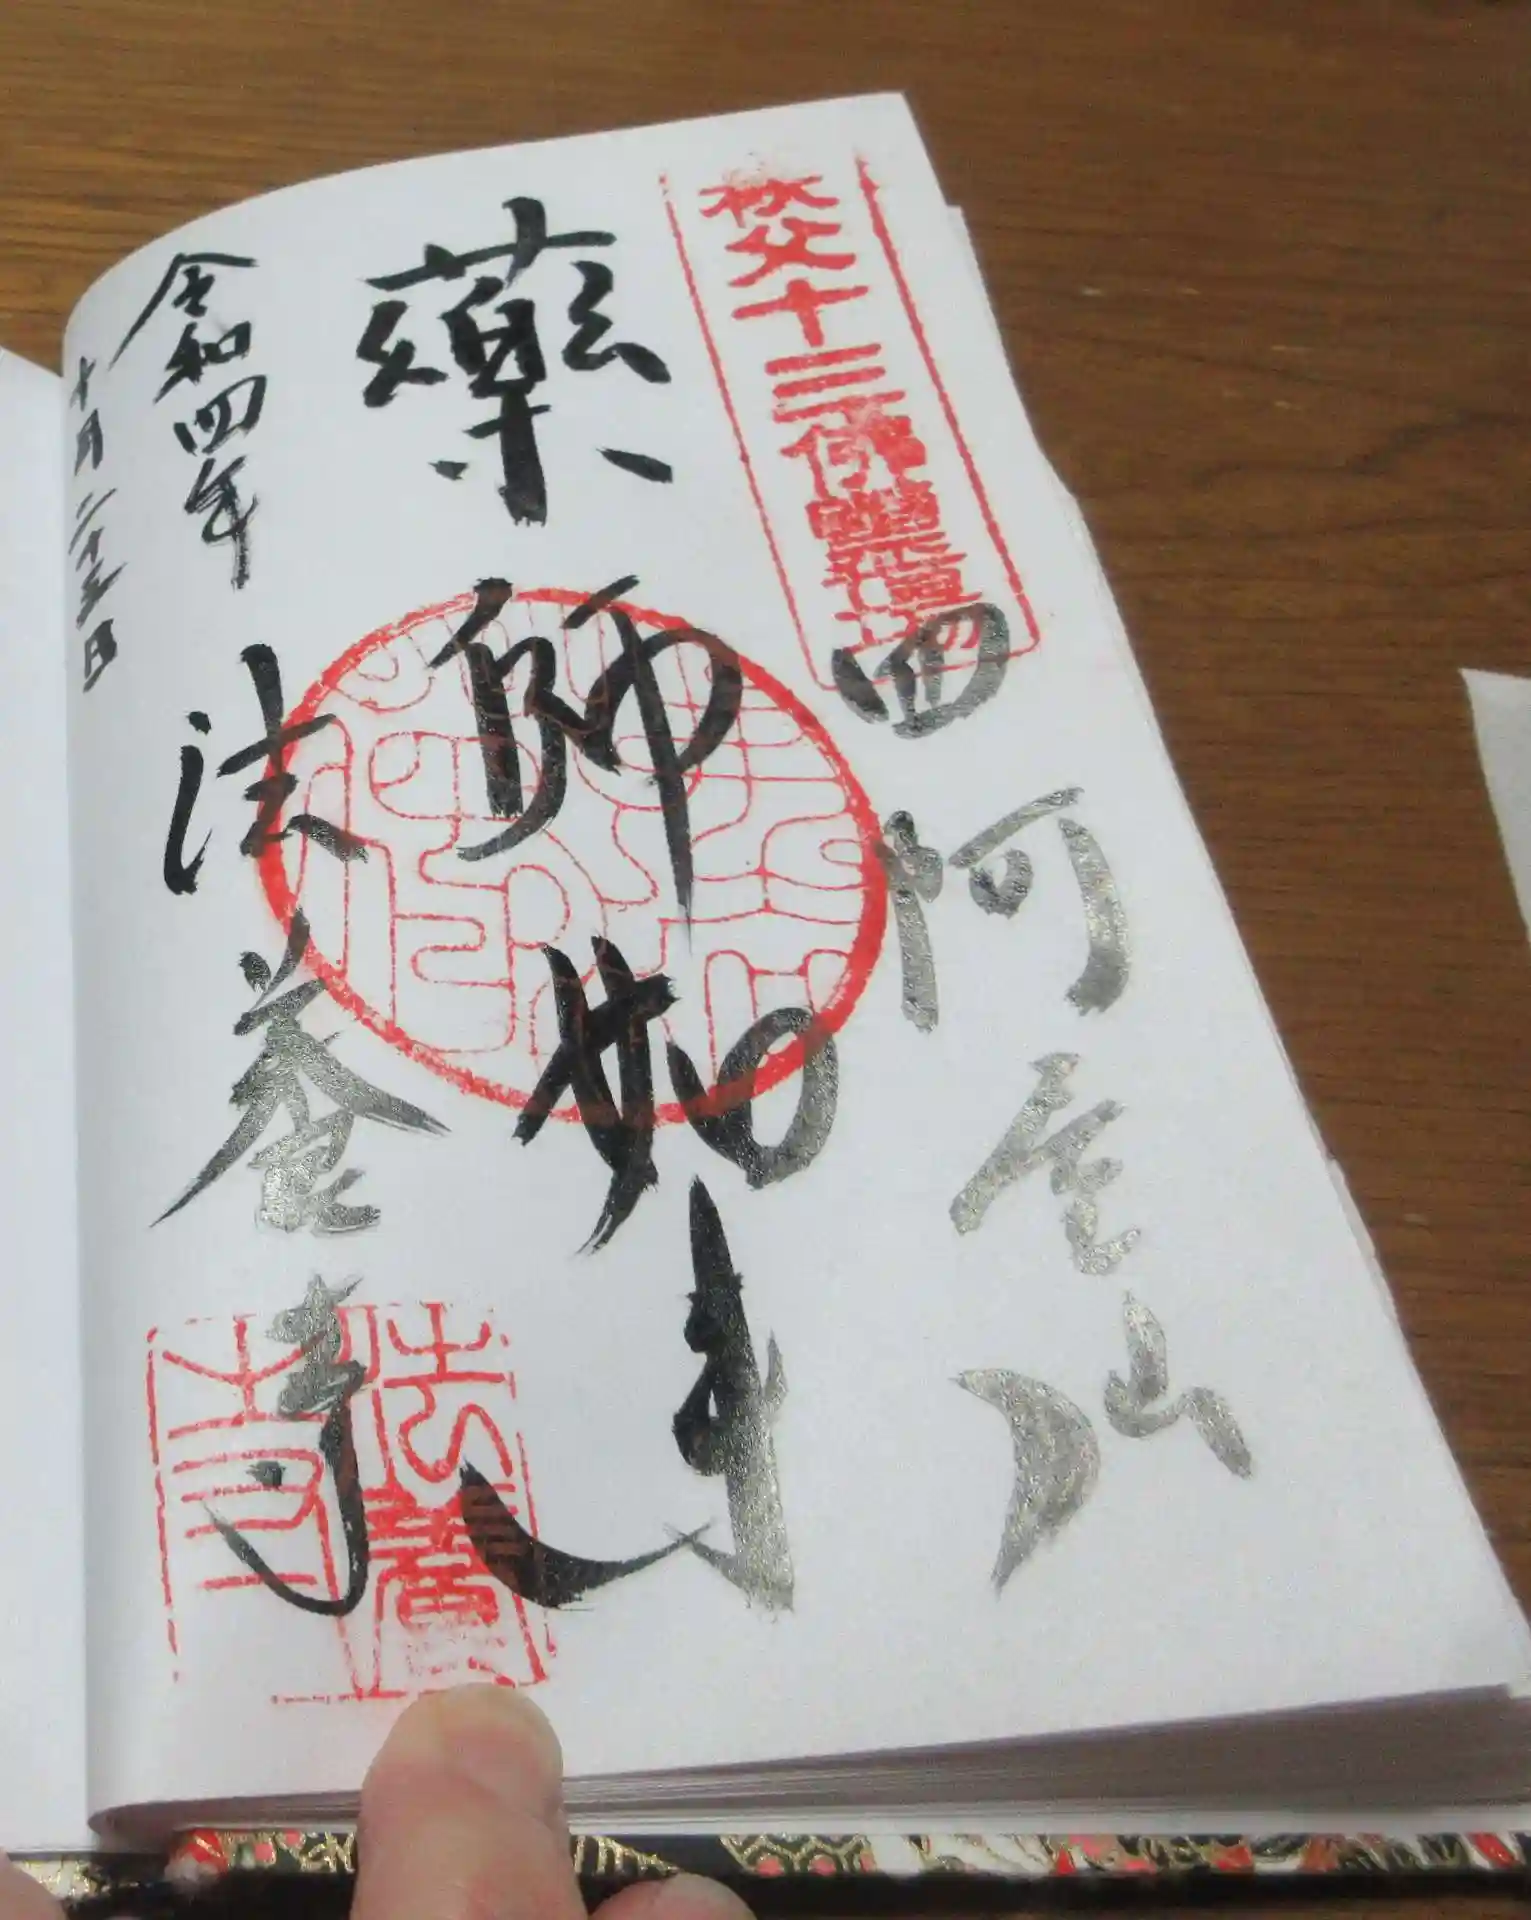 秩父十三佛靈場
四阿屋山
藥師如来
法養寺
令和四年
十月二十 日
法養
寺